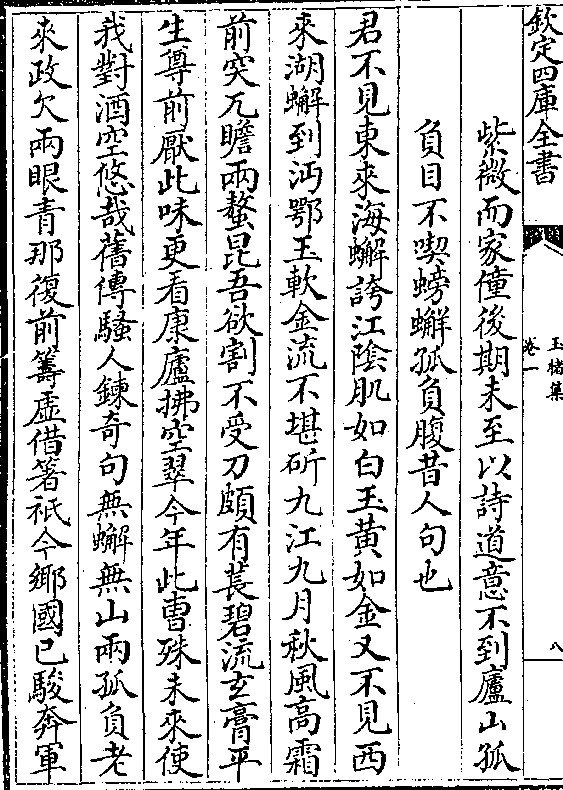 欽定四庫全書
玉楮集
卷一
八
紫微而家僮後期未至以詩道意不到廬山孤
負目不喫螃蠏孤負腹昔人句也
君不見東來海蠏誇江陰肌如白玉黃如金又不見西
來湖蠏到沔鄂玉軟金流不堪斫九江九月秋風高霜
前突兀瞻兩螯昆吾欲割不受刀頗有萇碧流玄膏平
生尊前厭此味更看康廬拂空翠今年此曹殊未來使
我對酒空悠哉舊傳騷人鍊奇句無蠏無山兩孤負老
來政欠兩眼青那復前籌虛借箸祇今鄉國已駿奔軍